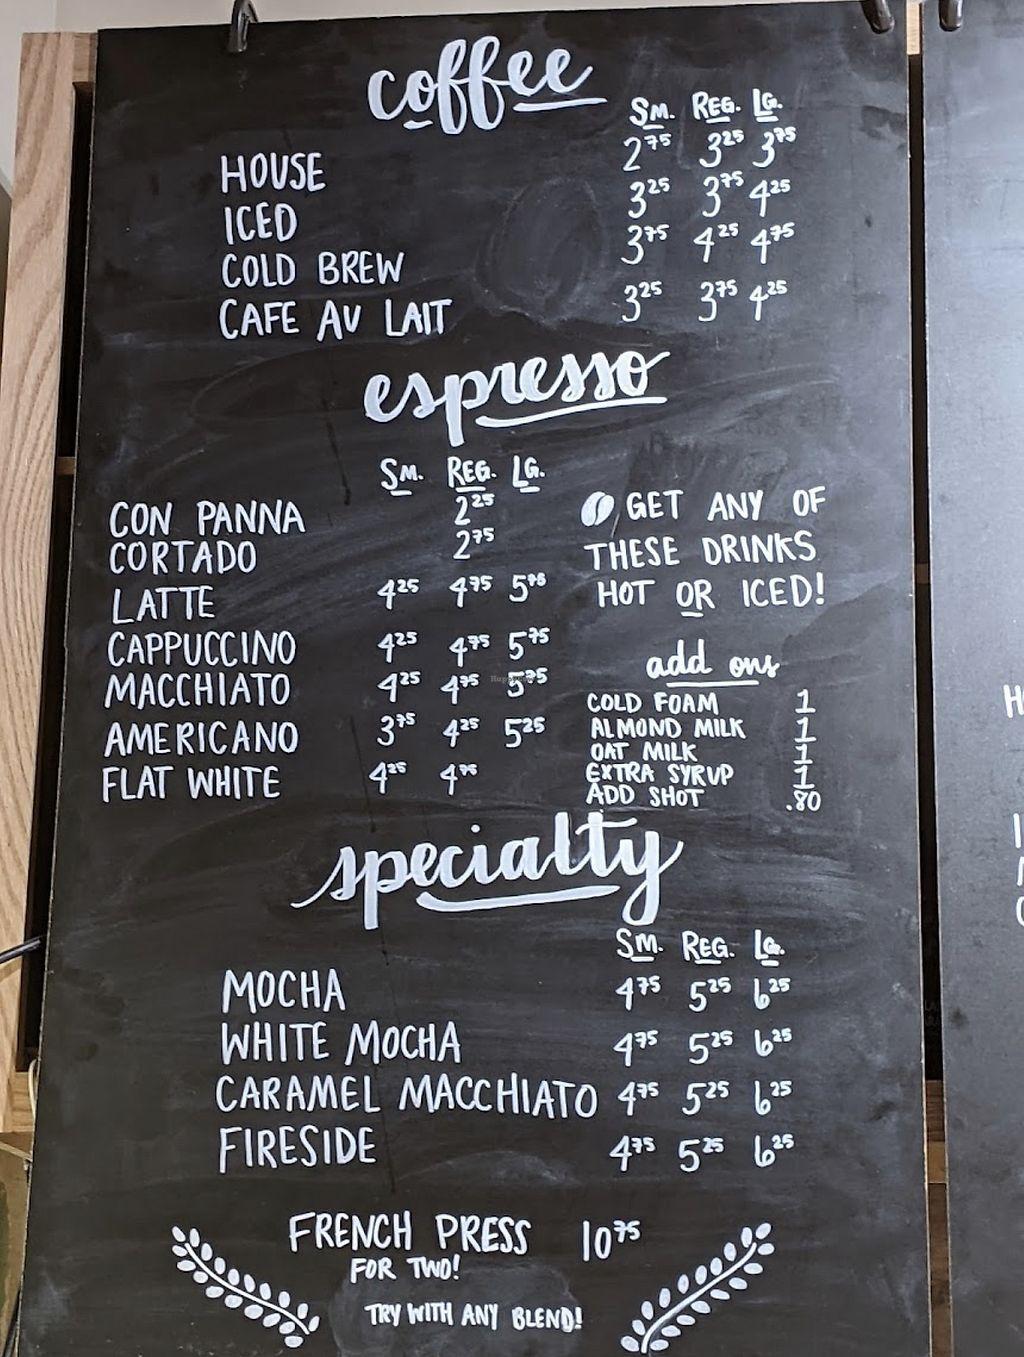 coffee
SM. REG. LG.
HOUSE 2.75 3.25 3.75
ICED 3.25 3.75 4.25
COLD BREW 3.75 4.25 4.75
CAFE AU LAIT 3.25 3.75 4.25
espresso
SM. REG. LG.
CON PANNA 2.25
CORTADO 2.75
LATTE 4.25 4.75 5.75
CAPPUCCINO 4.25 4.75 5.75
MACCHIATO 4.25 4.75 5.75
AMERICANO 3.75 4.25 5.25
FLAT WHITE 4.25 4.75
GET ANY OF
THESE DRINKS
HOT OR ICED!
add ons
COLD FOAM 1
ALMOND MILK 1
OAT MILK 1
EXTRA SYRUP 1
ADD SHOT .80
specialty
SM. REG. LG.
MOCHA 4.75 5.25 6.25
WHITE MOCHA 4.75 5.25 6.25
CARAMEL MACCHIATO 4.75 5.25 6.25
FIRESIDE 4.75 5.25 6.25
FRENCH PRESS 10.75
FOR TWO!
TRY WITH ANY BLEND!